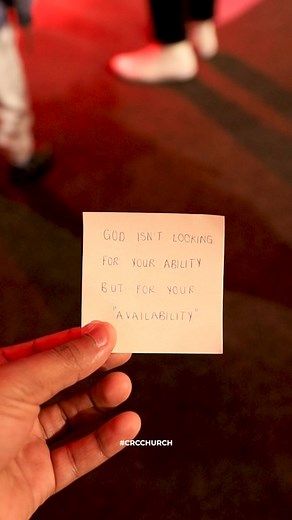 GOD ISN'T LOOKING
FOR YOUR ABILITY
BUT FOR YOUR
"AVAILABILITY"
#CRCCHURCH